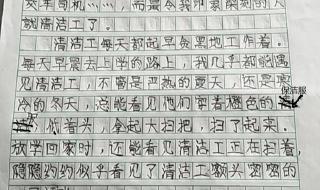 交车司机……，而最令我印象深刻的人
就清洁工了。
清洁工每天都起早贪黑地工作着。
每天早晨去上学的路上，我几乎都能遇
见清洁工，不管是严热的夏天，还是寒
冷的冬天，总能看见他们穿着橙色的
保洁服
，低着头，拿起大扫把，扫了起菜。
放学回家时，还能看见清洁工正在扫着，
隐隐约约似乎看见了清洁工额头密密的